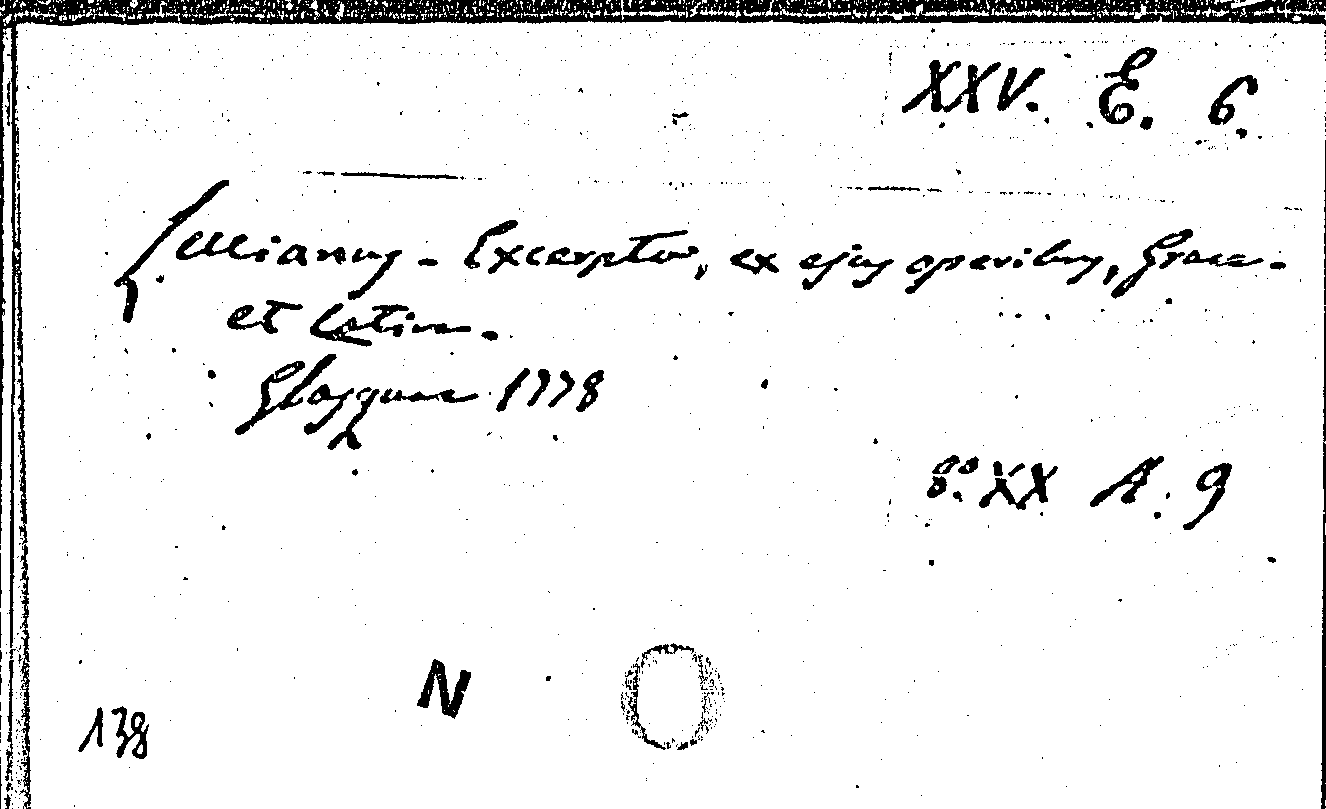 XXV. E. 6.
Lucianus - Excerpta, ex ejus operibus, Graece.
et Latine.
Glasguae 1778
8° XX A. 9
N
138